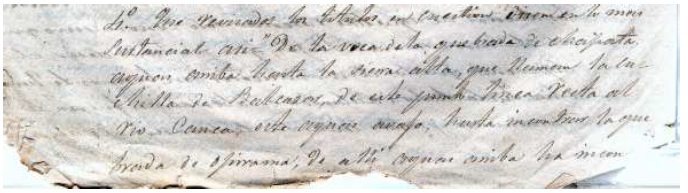 4º. Que revisados los titulos en cuestion, dicen en lo mas
sustancial asi: "De la voca de la quebrada de chaparta,
aguas arriba hasta la sierra alta, que llaman la cu-
chilla de Balcazar, de este punto linea recta al
rio Cauca, este aguas avajo, hasta incontrar la que
brada de Opirama; de alli aguas arriba ha incon